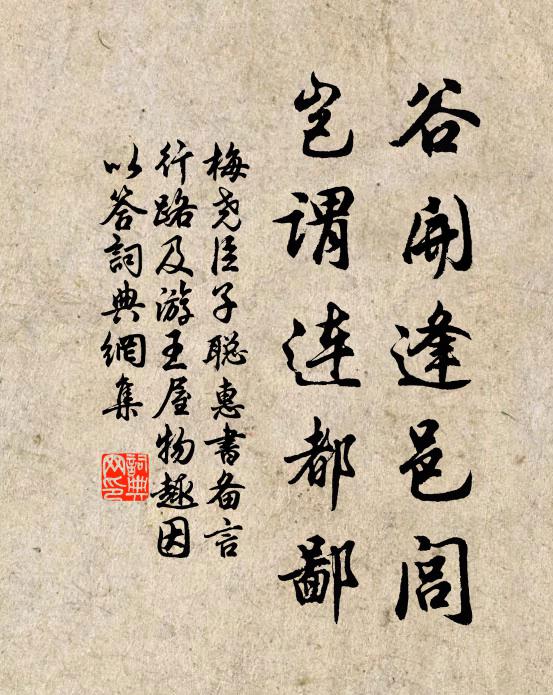 谷開逢邑閭
岂謂連都鄙
梅尧臣子聪惠書备言
行路及游王屋物趣因
以答詞典網集
詞典网印